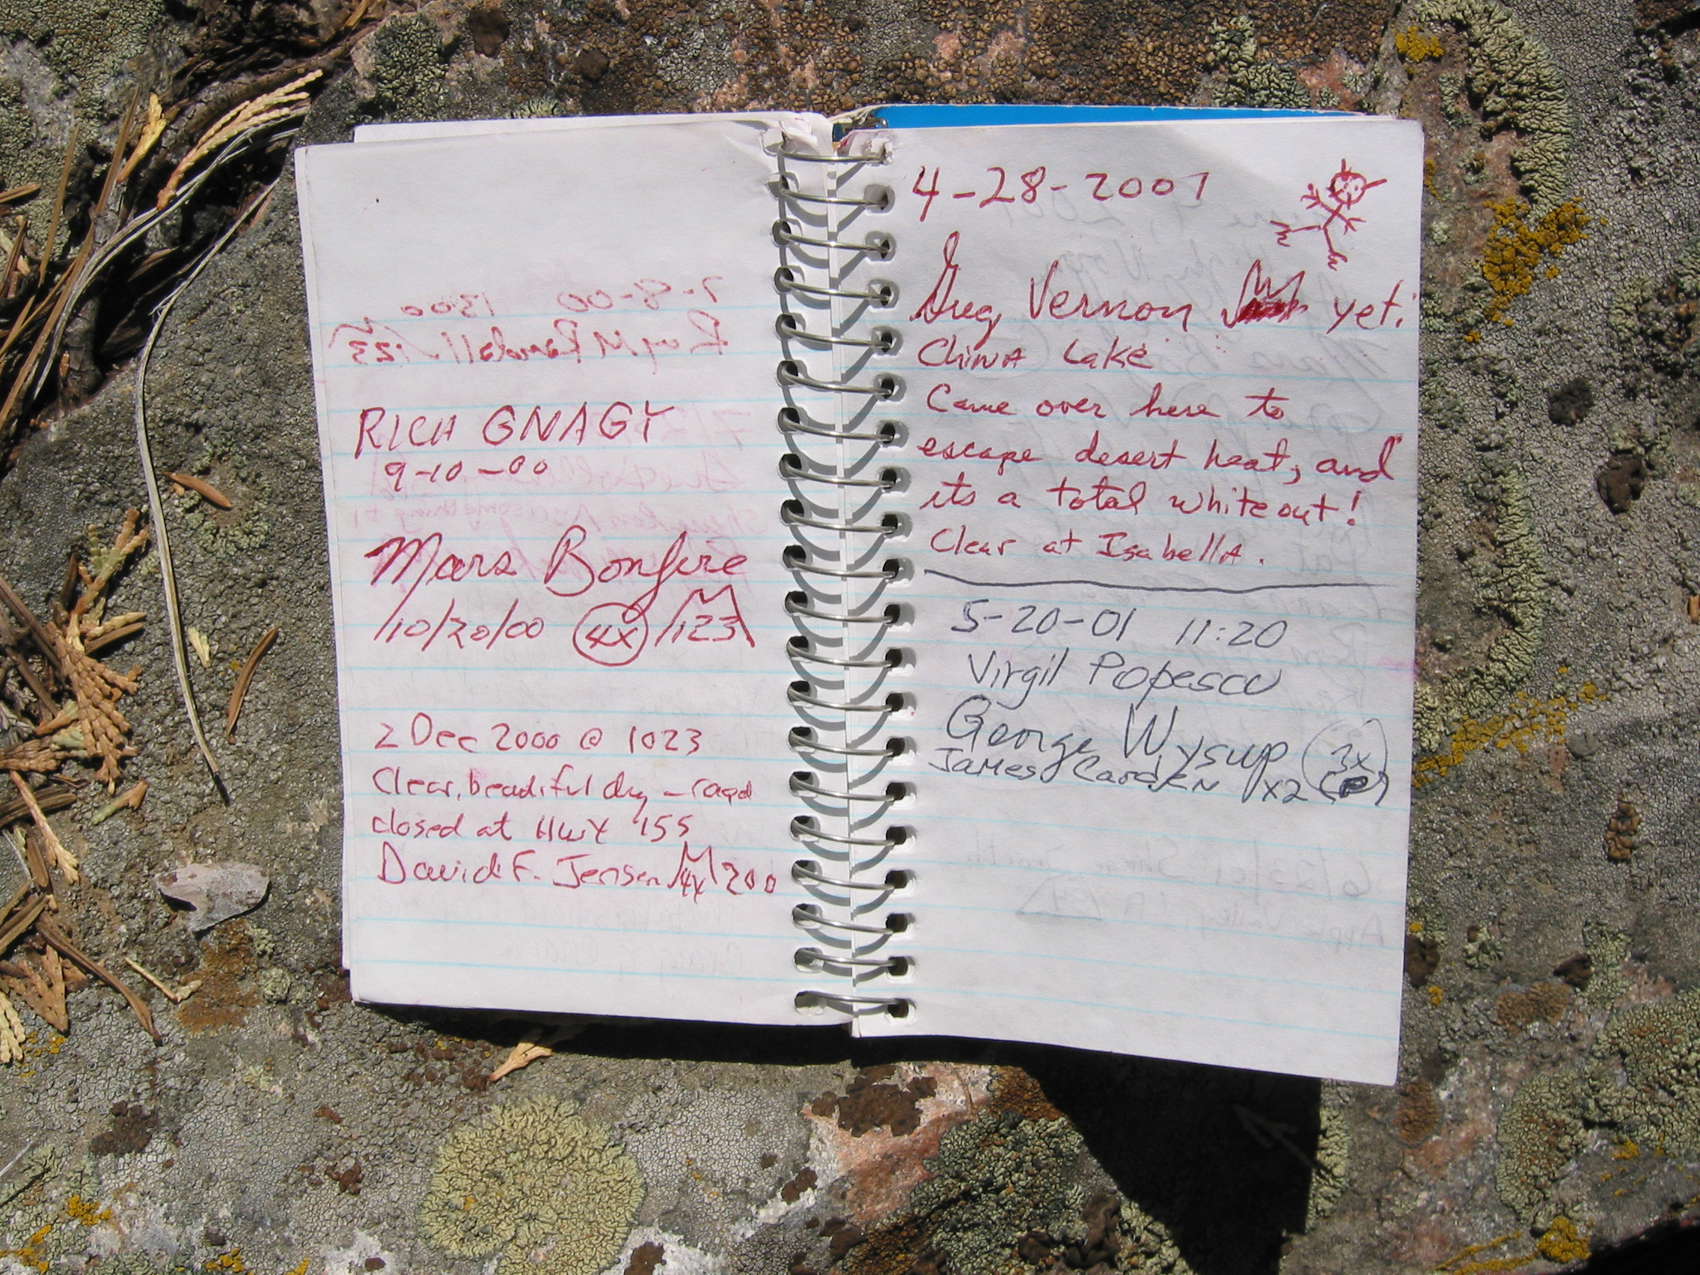 RICH GNAGY
9-10-00
Mars Bonfire
10/20/00 4x 123
2 Dec 2000 @ 1023
Clear, beautiful day - road
closed at HWY 155
David F. Jensen 4x 200
4-28-2001
Greg Vernon yeti
CHINA LAKE
Came over here to
escape desert heat, and
its a total whiteout!
Clear at IsabellA.
5-20-01 11:20
Virgil Popescu
George Wysup 3x
JAMES CARDEN x2